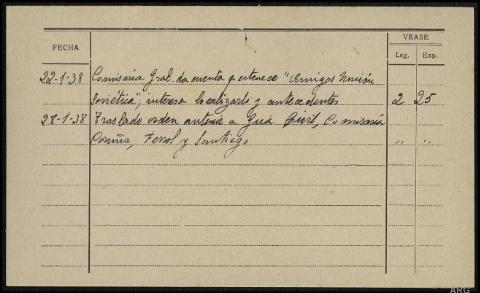 VEASE
FECHA
Leg. Exp.
22-1-38 Comisaría Gral. da cuenta pertenece "Amigos Unión
Soviética", interesa localizarle y antecedentes 2 25
27-1-38 Traslado orden anterior a Gria Civil, Comisaría " "
Coruña, Ferrol y Santiago
ARG